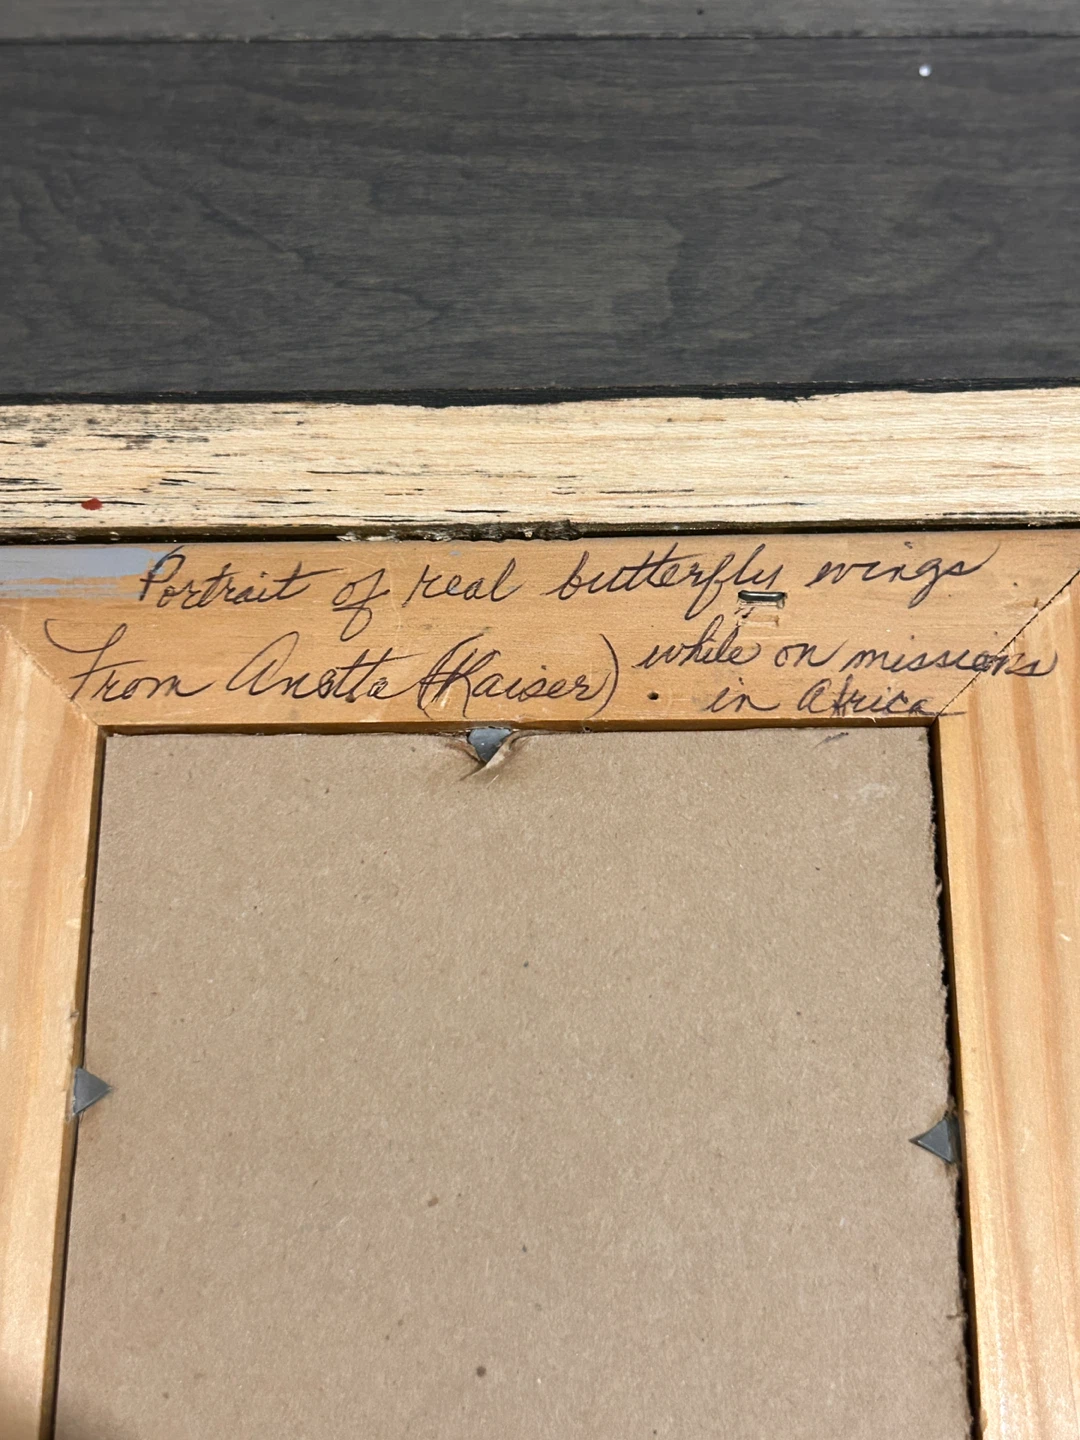 Portrait of real butterfly wings
From Anetta (Kaiser). while on missions
in Africa